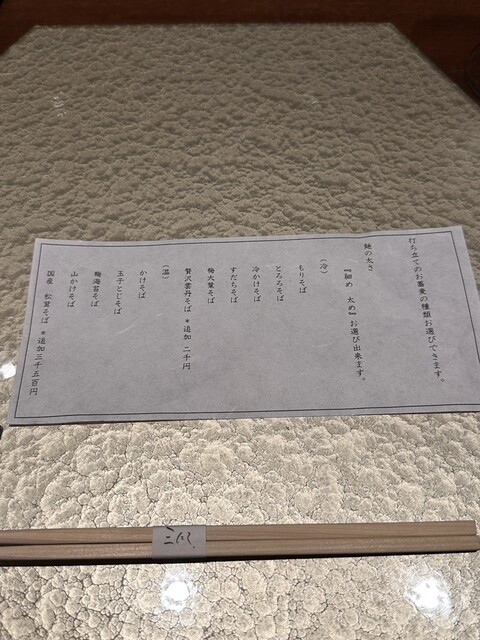 打ち立てのお蕎麦の種類お選びできます。
麺の太さ
『細め　太め』お選び出来ます。
（冷）
もりそば
とろろそば
冷かけそば
すだちそば
梅大葉そば
贅沢雲丹そば　＊追加　二千円
（温）
かけそば
玉子とじそば
梅海苔そば
山かけそば
国産　松茸そば　＊追加三千五百円